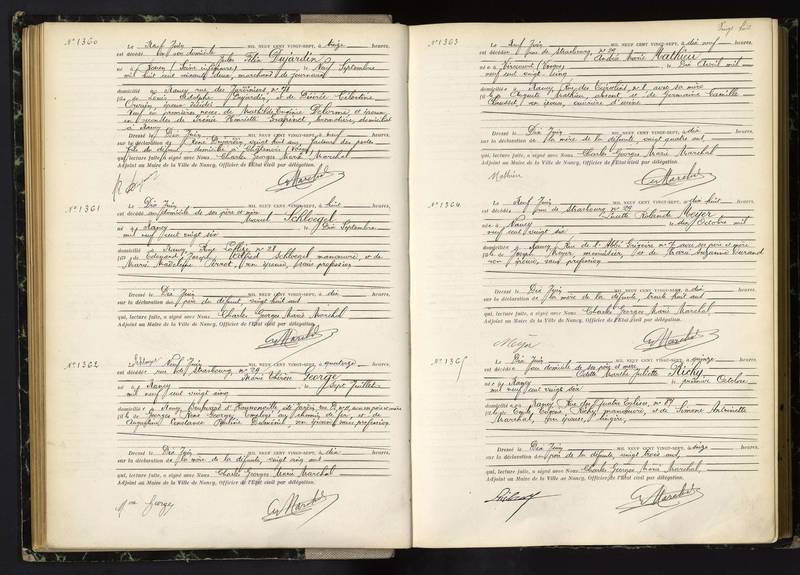 N° 1360
Le Neuf Juin MIL NEUF CENT VINGT-SEPT, à treize heures,
est décédé en son domicile Jules Félix Dujardin
né à Rouen (Seine inférieure) le Neuf Septembre
mil huit cent soixante deux, marchand de journaux
domicilié à Nancy, rue des Jardiniers, n° 71
fils de Louis Adolphe Dujardin, et de Désirée Célestine
époux décédés
Veuf en premières noces de Mathilde Eugénie Delorme, et époux
en secondes de Henriette domicilié
à Nancy
Dressé le Dix Juin MIL NEUF CENT VINGT-SEPT, à neuf heures,
sur la déclaration de René Dujardin, vingt huit ans, facteur des postes
fils du défunt, domicilié à (Vosges)
qui, lecture faite, a signé avec Nous Charles Georges Marie Marchal
Adjoint au Maire de la Ville de Nancy, Officier de l'Etat civil par délégation.
N° 1361
Le Dix Juin MIL NEUF CENT VINGT-SEPT, à huit heures,
est décédé au domicile de ses père et mère Marcel Schloegel
né à Nancy le Dix Septembre
mil neuf cent vingt six
domicilié à Nancy, Rue n° 28,
fils de Edmond Joseph Alfred Schloegel, manoeuvre, et de
Marie Madeleine Perrot, son épouse, sans profession
Dressé le Dix Juin MIL NEUF CENT VINGT-SEPT, à dix heures,
sur la déclaration du père du défunt, vingt huit ans
qui, lecture faite, a signé avec Nous Charles Georges Marie Marchal
Adjoint au Maire de la Ville de Nancy, Officier de l'Etat civil par délégation.
N° 1362
Le Neuf Juin MIL NEUF CENT VINGT-SEPT, à quatorze heures,
est décédée rue de Strasbourg, n° 29 Marie Thérèse George
née à Nancy le Sept Juillet
mil neuf cent vingt cinq
domiciliée à Nancy, Boulevard d' avec ses père et mère
fille de Georges René George, employé au chemin de fer, et de
Augustine Constance son épouse, sans profession
Dressé le Dix Juin MIL NEUF CENT VINGT-SEPT, à dix heures,
sur la déclaration de la mère de la défunte, vingt cinq ans
qui, lecture faite, a signé avec Nous Charles Georges Marie Marchal
Adjoint au Maire de la Ville de Nancy, Officier de l'Etat civil par délégation.
Mme George
N° 1363
Le Neuf Juin MIL NEUF CENT VINGT-SEPT, à dix neuf heures,
est décédée rue de Strasbourg, n° 29 Andrée Marie Mathieu
née à Vincourt (Vosges) le Dix Avril mil
neuf cent vingt cinq
domiciliée à Nancy, Rue des n° 1, avec sa mère
fille de Auguste Mathieu, absent et de Germaine Camille
son épouse, ouvrière d'usine
Dressé le Dix Juin MIL NEUF CENT VINGT-SEPT, à dix heures,
sur la déclaration de la mère de la défunte, vingt quatre ans,
qui, lecture faite, a signé avec Nous Charles Georges Marie Marchal
Adjoint au Maire de la Ville de Nancy, Officier de l'Etat civil par délégation.
Mathieu
N° 1364
Le Neuf Juin MIL NEUF CENT VINGT-SEPT, à dix huit heures,
est décédée rue de Strasbourg n° 29 Lucette Rolande Moyer
née à Nancy le dix Octobre mil
neuf cent vingt six
domiciliée à Nancy, Rue de l'Abbé Grégoire n° 7, avec ses père et mère
fille de Joseph Moyer, menuisier, et de Marie Suzanne Durand
son épouse, sans profession
Dressé le Dix Juin MIL NEUF CENT VINGT-SEPT, à dix heures,
sur la déclaration de la mère de la défunte, trente huit ans
qui, lecture faite, a signé avec Nous Charles Georges Marie Marchal,
Adjoint au Maire de la Ville de Nancy, Officier de l'Etat civil par délégation.
N° 1365
Le Dix Juin MIL NEUF CENT VINGT-SEPT, à quinze heures,
est décédée au domicile de ses père et mère Odette Marthe Juliette Richy
née à Nancy le premier Octobre
mil neuf cent vingt six
domiciliée à Nancy, Rue des Quatre Eglises, n° 89
fille de Emile Richy, manoeuvre, et de Simone Antoinette
Marchal, son épouse, lingère,
Dressé le Dix Juin MIL NEUF CENT VINGT-SEPT, à seize heures,
sur la déclaration du père de la défunte, vingt trois ans,
qui, lecture faite, a signé avec Nous Charles Georges Marie Marchal,
Adjoint au Maire de la Ville de Nancy, Officier de l'Etat civil par délégation.